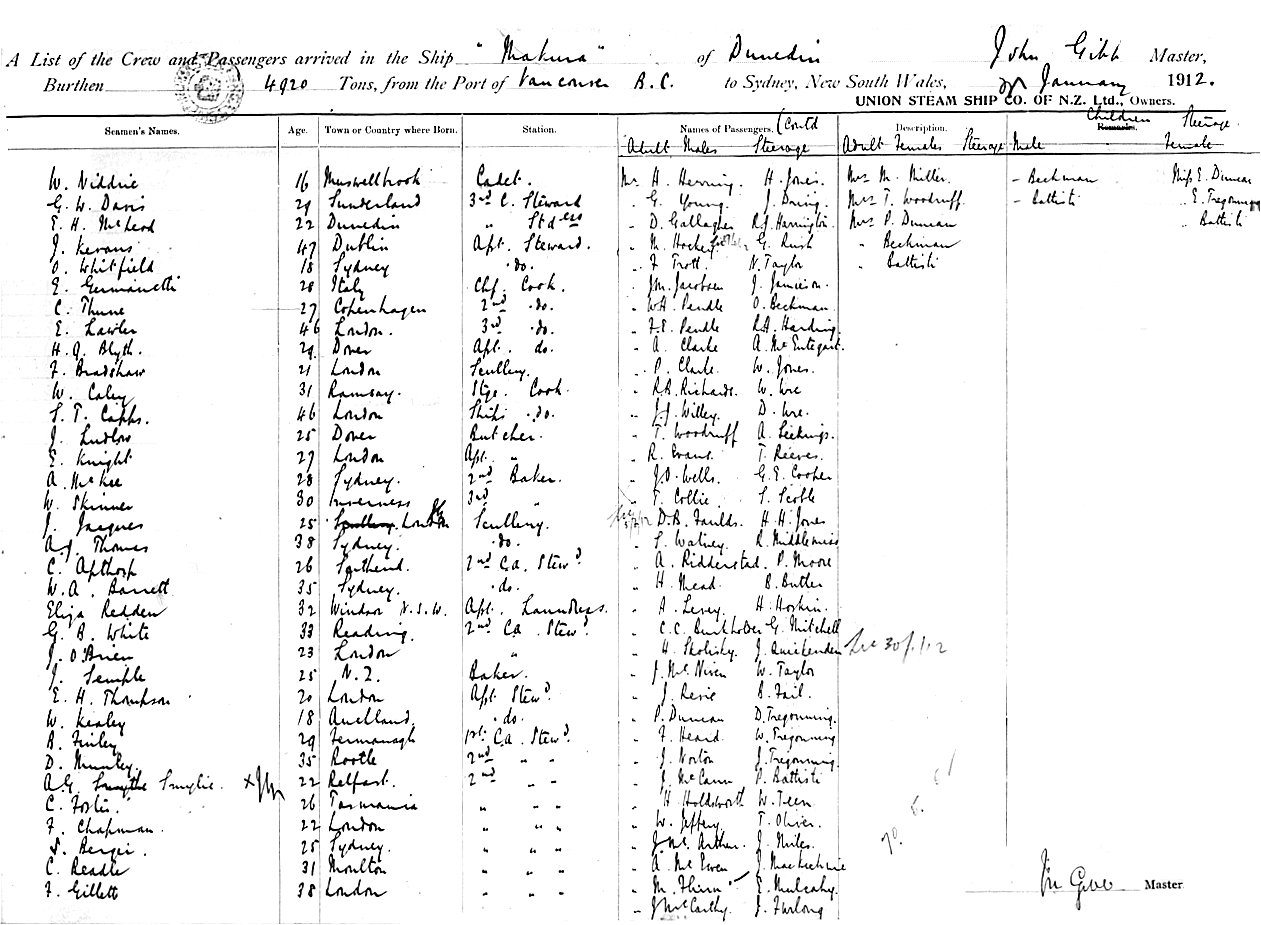 A List of the Crew and Passengers arrived in the Ship "Makura" of Dunedin John Gibb Master,
Burthen 4920 Tons, from the Port of Vancouver B.C. to Sydney, New South Wales, January 1912.
UNION STEAM SHIP CO. OF N.Z. Ltd., Owners.
Seamen's Names. Age. Town or Country where Born. Station. Names of Passengers. (Contd Description. Children Remarks. Steerage
Adult Males Steerage Adult Females Steerage Male Female
W. Niddrie 16 Muswellbrook Cadet. Mr H. Herring. H. Jones. Mrs M. Miller. - Beckman Miss E. Duncan
G. W. Davis 29 Sunderland 3rd C. Steward " G. Young. J. Dring. Mrs T. Woodruff. - Battisti " E. Tregonning
E. H. McLeod 22 Dunedin " Stdess " D. Gallagher R.J. Harrington. Mrs P. Duncan " Battisti
J. Kevans 47 Dublin Apt. Steward. " M. Hockey G. Rush " Beckman
O. Whitfield 18 Sydney do. " F. Trott. N. Taylor " Battisti
E. Germanetti 28 Italy Chf. Cook. " J.M. Jacobsen J. Jamieson.
C. Thune 27 Copenhagen 2nd do. " W.A. Pendle O. Beckman.
E. Lawler 46 London. 3rd do. " F.E. Pendle R.A. Harding.
H. G. Blyth. 29 Dover Apt. do. " A. Clarke A. McEntegart.
F. Bradshaw 21 London Scullery. " P. Clarke W. Jones.
W. Caley 31 Ramsay. Stge. Cook. " R.B. Richards. W. Ure
S. T. Capps. 46 London Ships do. " J.J. Willey. D. Ure.
J. Ludlow 25 Dover Butcher. " T. Woodruff A.
E. Knight 27 London Apt. " " R. Evans. T. Reeves.
A. McKee 28 Sydney. 2nd Baker. " J.O. Wells. G.E. Cooper
W. Skinner 30 Inverness 3rd " " T. Collie S. Scoble
J. Jacques 25 Scullery London Scullery. " D.B. Faulds. H. H. Jones
A.J. Thomas 38 Sydney. do. " S. Watney. R. Middlemiss
C. Apthorp 26 Southend. 2nd Ca. Stewd. " A. Ridderstad. P. Moore
W. A. Barrett 35 Sydney. do. " H. Mead. B. Butler
Eliza Redden 32 Windsor N.S.W. Apt. Laundress. " A. Levey. H. Hoskin.
G. B. White 33 Reading. 2nd Ca. Stewd. " C.C. Burkholder G. Mitchell
J. O'Brien 23 London " " H. Skolisky.
J. Semple 25 N.Z. Baker. " J. McNiven W. Taylor
E. H. Thompson 20 London Apt. Stewd. " J. Resie B. Fail.
W. Kealey 18 Auckland. do. " P. Duncan D. Tregonning.
B. Finley 29 Fermanagh 1st Ca. Stewd. " F. Heard W. Tregonning
D. Munley. 35 Bootle 2nd " " " J. Norton J. Tregonning.
A.G. Smythe Smylie. 22 Belfast. 2nd " " " J. McCann P. Battisti
C. Foster. 26 Tasmania " " " " H. Holdsworth W. Teen
F. Chapman. 22 London " " " " W. Jeffery. T. Oliver.
S. Berger. 25 Sydney. " " " " J. McArthur. J. Miles.
C. Readle 31 Moulton " " " " A. McEwen J. MacKechnie
F. Gillett 38 London " " " " M. Flinn E. Mulcahy.
" J McCarthy. J. Furlong
Jn Gibb Master